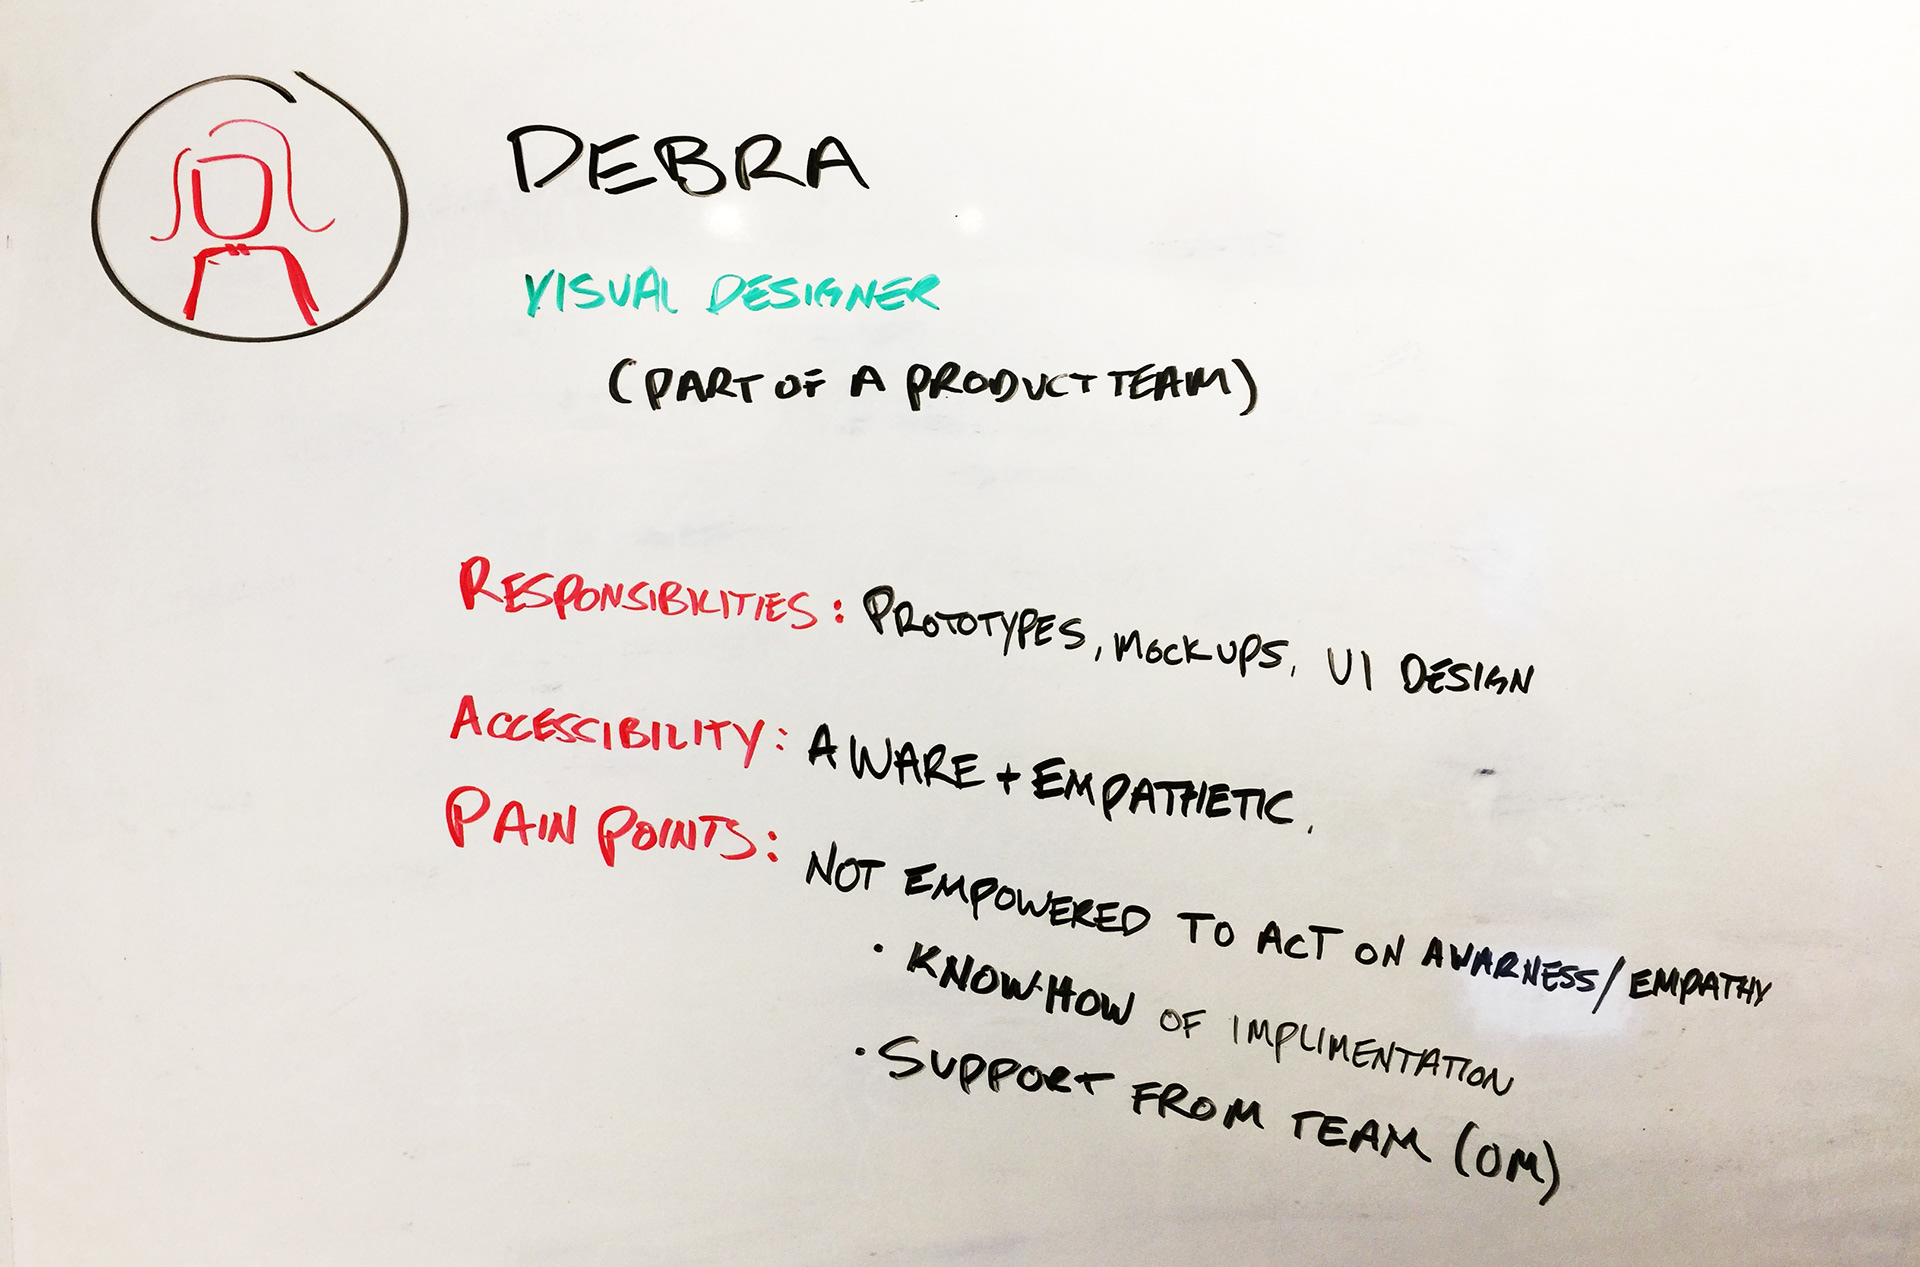 DEBRA
VISUAL DESIGNER
(PART OF A PRODUCT TEAM)
RESPONSIBILITIES: PROTOTYPES, MOCKUPS, UI DESIGN
ACCESSIBILITY: AWARE + EMPATHETIC.
PAIN POINTS: NOT EMPOWERED TO ACT ON AWARNESS/EMPATHY
· KNOW-HOW OF IMPLIMENTATION
· SUPPORT FROM TEAM (OM)